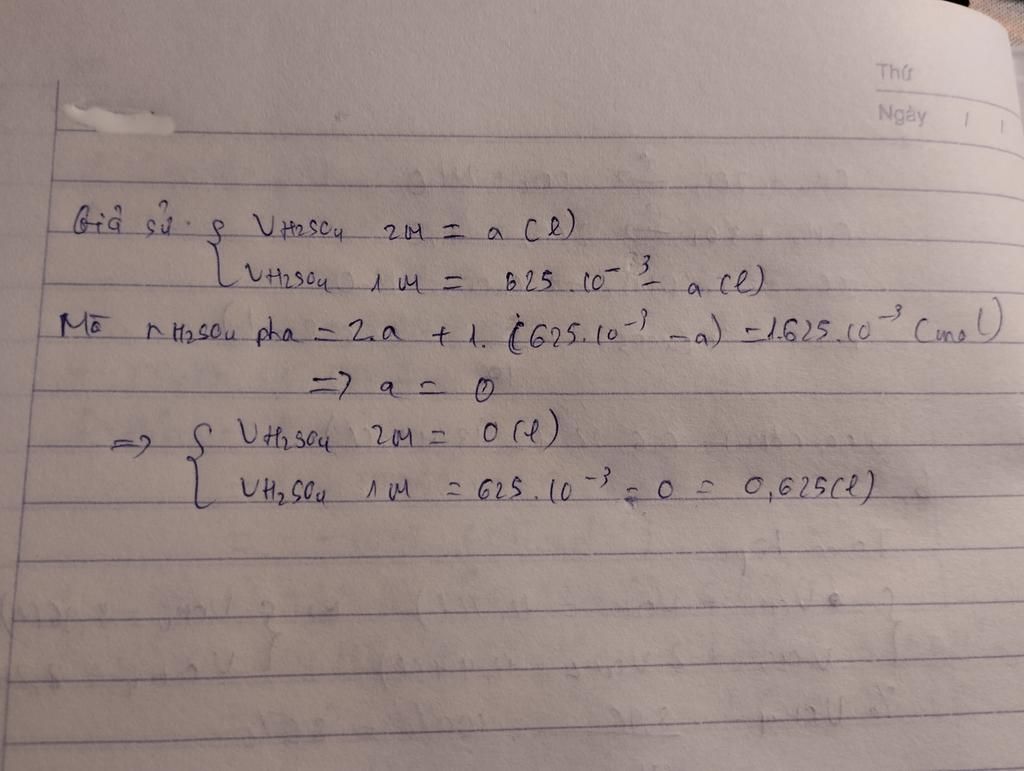 Thứ
Ngày / /
Giả sử { VH2SO4 2M = a (l)
VH2SO4 1M = 625.10⁻³ - a (l)
Mà nH2SO4 pha = 2.a + 1.(625.10⁻³ - a) = 1.625.10⁻³ (mol)
=> a = 0
=> { VH2SO4 2M = 0 (l)
VH2SO4 1M = 625.10⁻³ - 0 = 0,625(l)